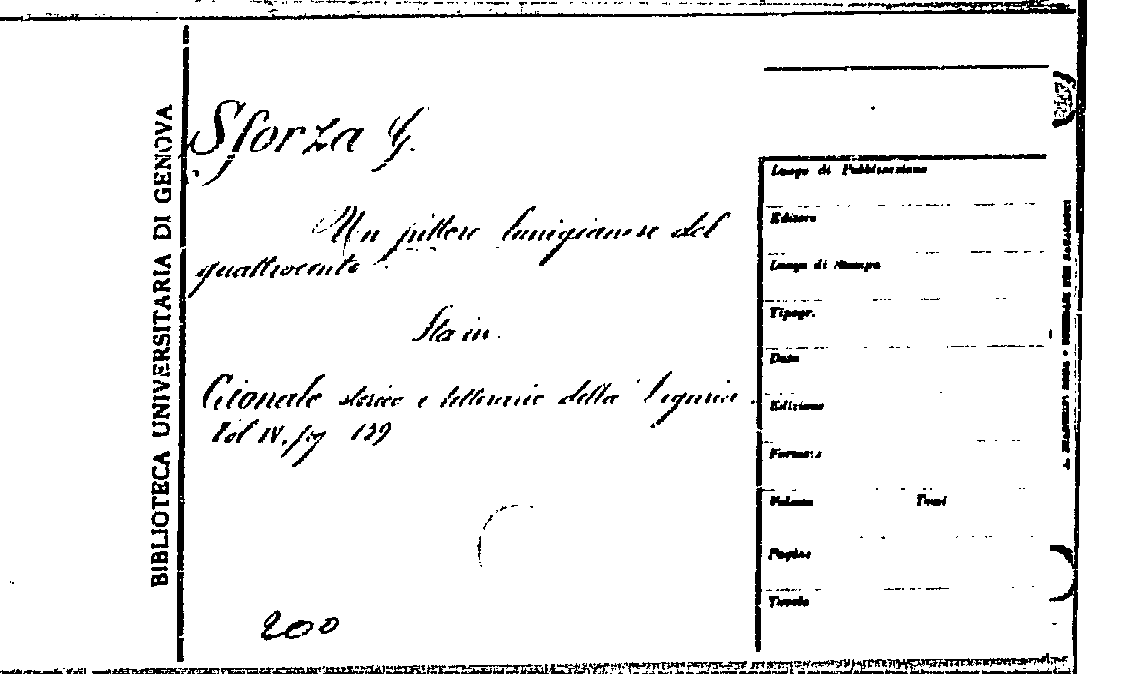 BIBLIOTECA UNIVERSITARIA DI GENOVA
Sforza G.
Un pittore lunigianese del
quattrocento.
Sta in.
Gionale storico e letterario della Liguria.
Vol IV. pg 139
200
Luogo di Pubblicazione
Editore
Luogo di Stampa
Tipogr.
Data
Edizione
Formato
Volume Tomi
Pagine
Tavole